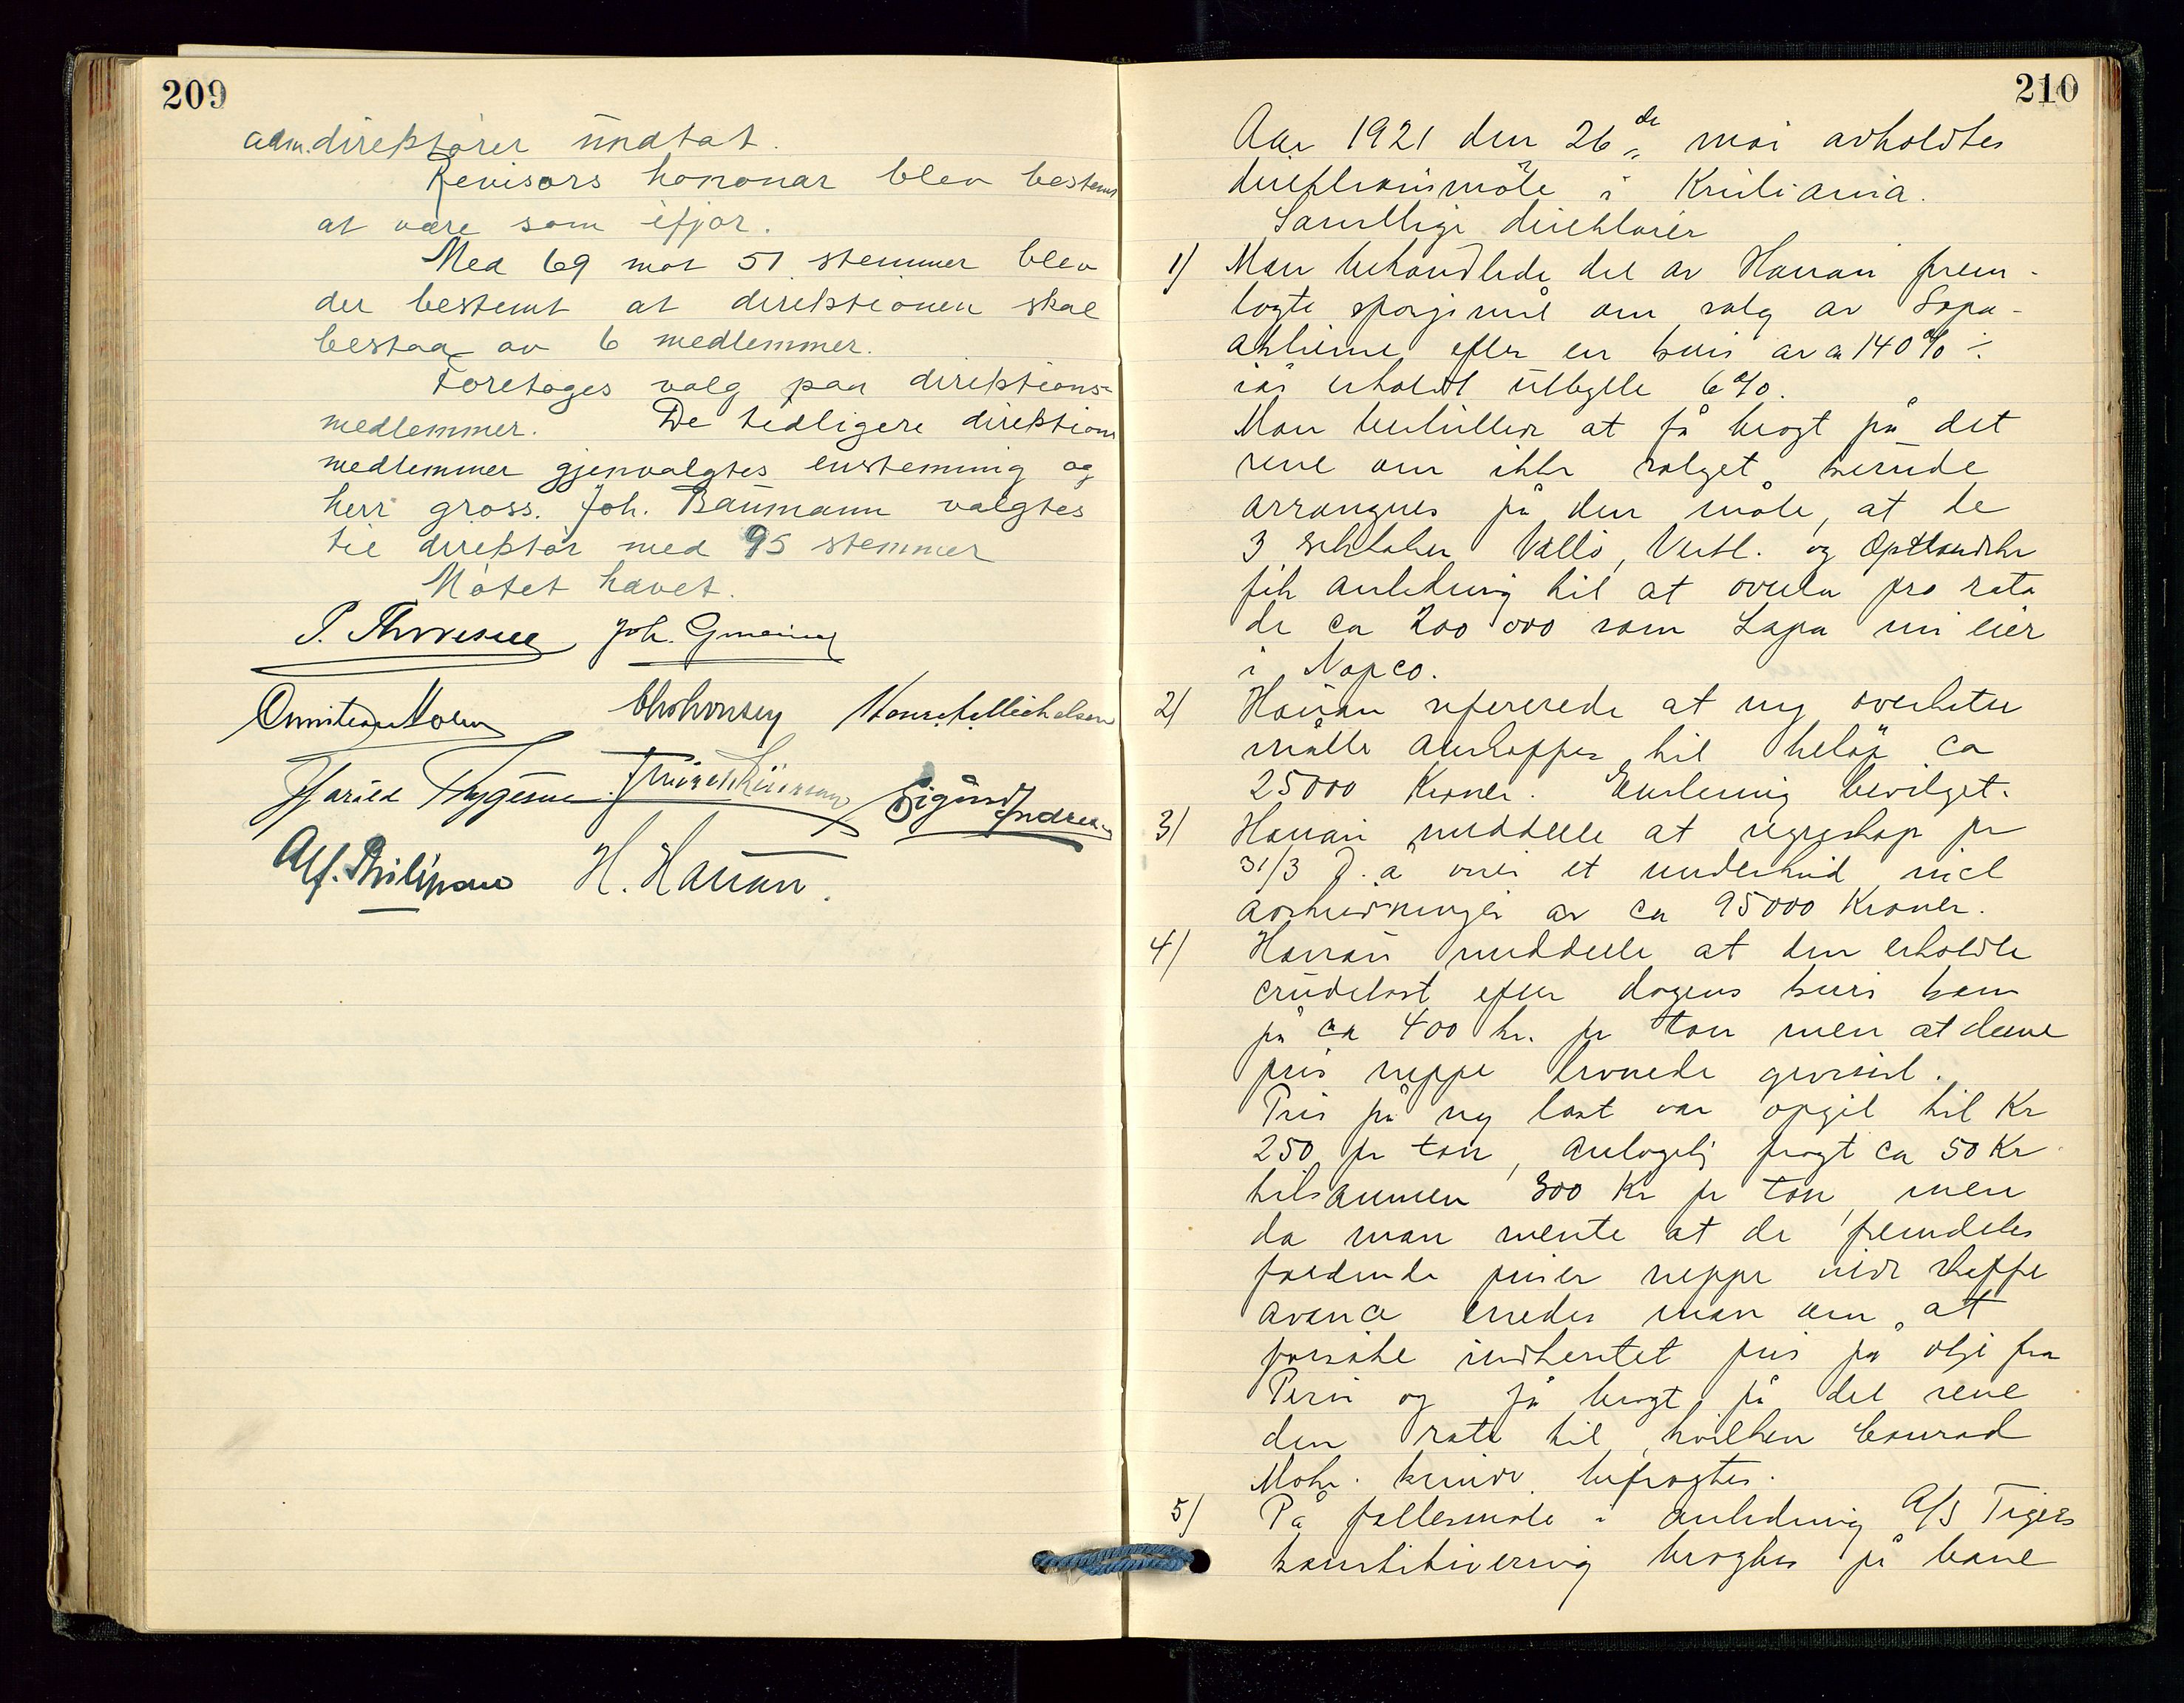 209
adm. direktører undtat.
Revisors honorar blev bestemt
at være som ifjor.
Med 69 mot 51 stemmer blev
der bestemt at direktionen skal
bestaa av 6 medlemmer.
Foretoges valg paa direktions-
medlemmer. De tedligere direktions
medlemmer gjenvalgtes enstemmig og
herr gross. Joh. Baumann valgtes
til direktør med 95 stemmer
Møtet hævet.
Joh.
Harald Thygesen Sigurd
Alf. Philipsen H. Hauan.
210
Aar 1921 den 26de mai avholdtes
direktionsmöte i Kristiania.
Samtlige direktörer
1) Man behandlede det av Hauan frem-
lagte spörsmål om salg av Lapa-
aktierne efter en kurs av ca 140% ÷
iår erholdt utbytte 6%.
Man beslutter at få bragt på det
rene om ikke salget kunde
arrangeres på den måte, at de
3 selskaper Vallö, Vestl. og Oplandske
fik anledning til at overta pro rata
de ca 200 000 som Lapa nu eier
i Napco.
2) Hauan refererede at ny overheter
måtte anskaffes til belöp ca
25000 Kroner. Enstemig bevilget.
3) Hauan meddelte at regnskap pr
31/3 d.å viser et underskud incl
avskrivninger av ca 95000 Kroner.
4) Hauan meddelte at den erholdte
crudelast efter dagens kurs kom
på ca 400 kr. pr ton men at denne
pris neppe levnede gevinst.
Pris på ny last var opgit til Kr
250 pr ton, antagelig fragt ca 50 Kr
tilsammen 300 Kr pr ton, men
da man mente at de fremdeles
faldende priser neppe vilde skaffe
avance enedes man om at
forsöke indhentet pris på olje fra
Peru og få bragt på det rene
den rate til hvilken Conrad
Mohr kunde befragtes.
5) På fællesmöte i anledning A/S Tigers
konstituering bragtes på bane